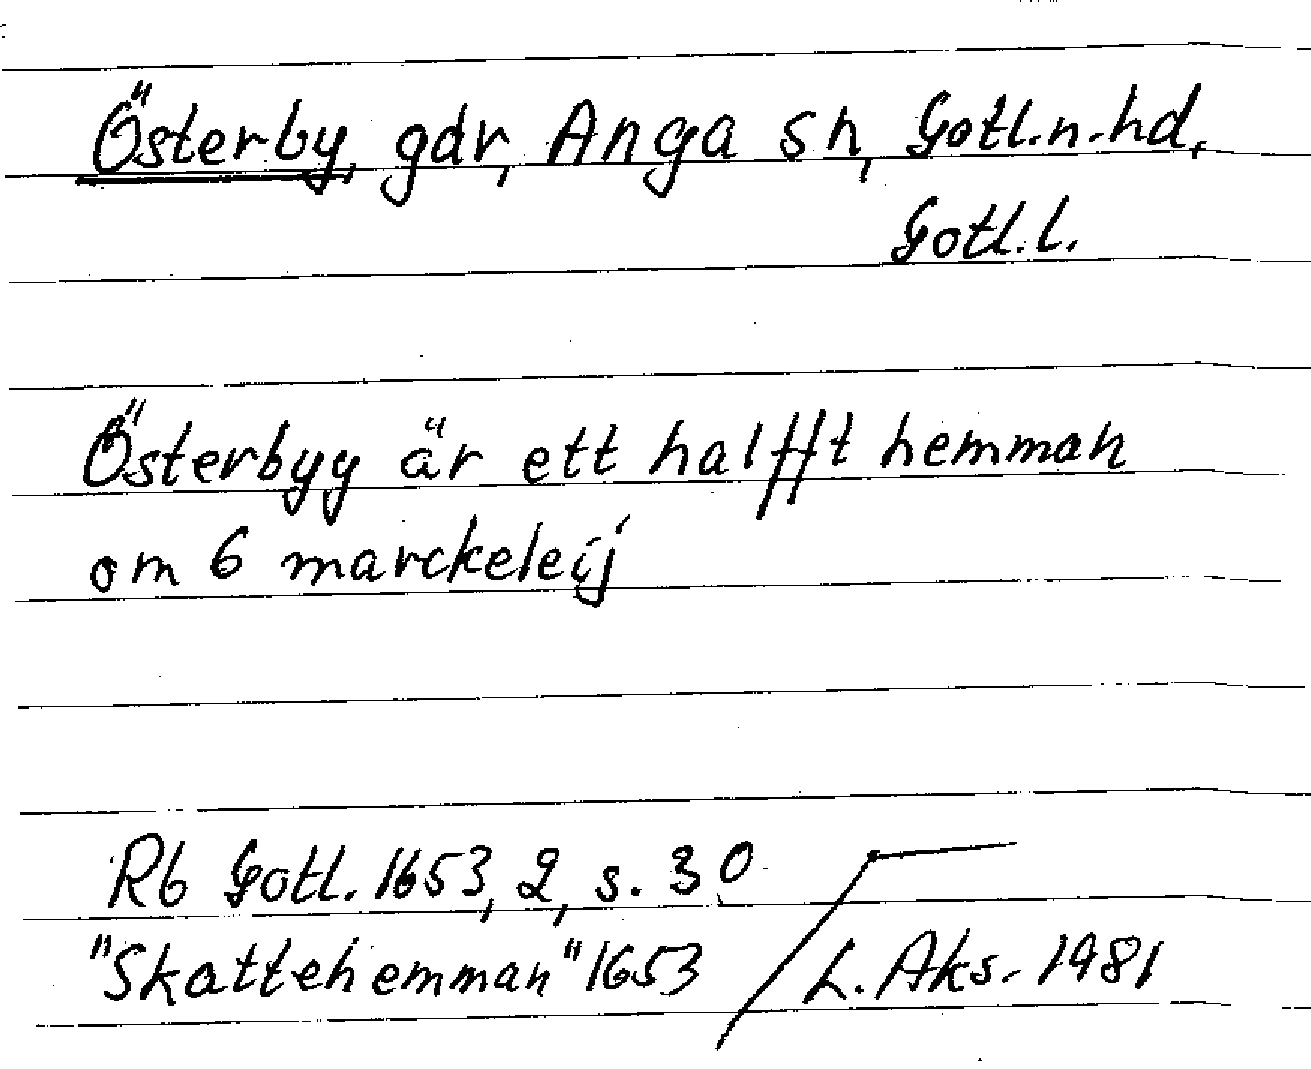 Österby, gdr, Anga sn, Gotl.n.hd,
Gotl.l.
Österbyy är ett halfft hemman
om 6 marckeleij
Rb Gotl. 1653, 2, s. 30
"Skattehemman" 1653 L. Aks. 1981